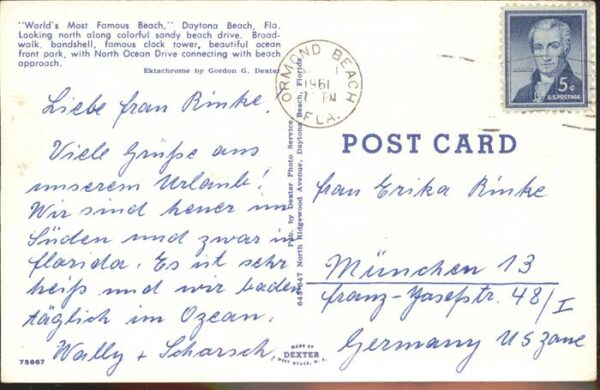 "World's Most Famous Beach," Daytona Beach, Fla.
Looking north along colorful sandy beach drive. Broad-
walk, bandshell, famous clock tower, beautiful ocean
front park, with North Ocean Drive connecting with beach
approach.
Ektachrome by Gordon G. Dexter
Liebe Frau Rinke,
Viele Grüße aus
unserem Urlaub!
Wir sind heuer im
Süden und zwar in
Florida. Es ist sehr
heiß und wir baden
täglich im Ozean.
Wally + Scharsch.
75667
Pub. by Dexter Photo Service,
645-647 North Ridgewood Avenue, Daytona Beach, Florida
MADE BY
DEXTER
WEST NYACK, N. Y.
ORMOND BEACH
1961
PM
FLA.
5¢
U.S. POSTAGE
POST CARD
Frau Erika Rinke
München 13
Franz-Josefstr. 48/I
Germany US Zone